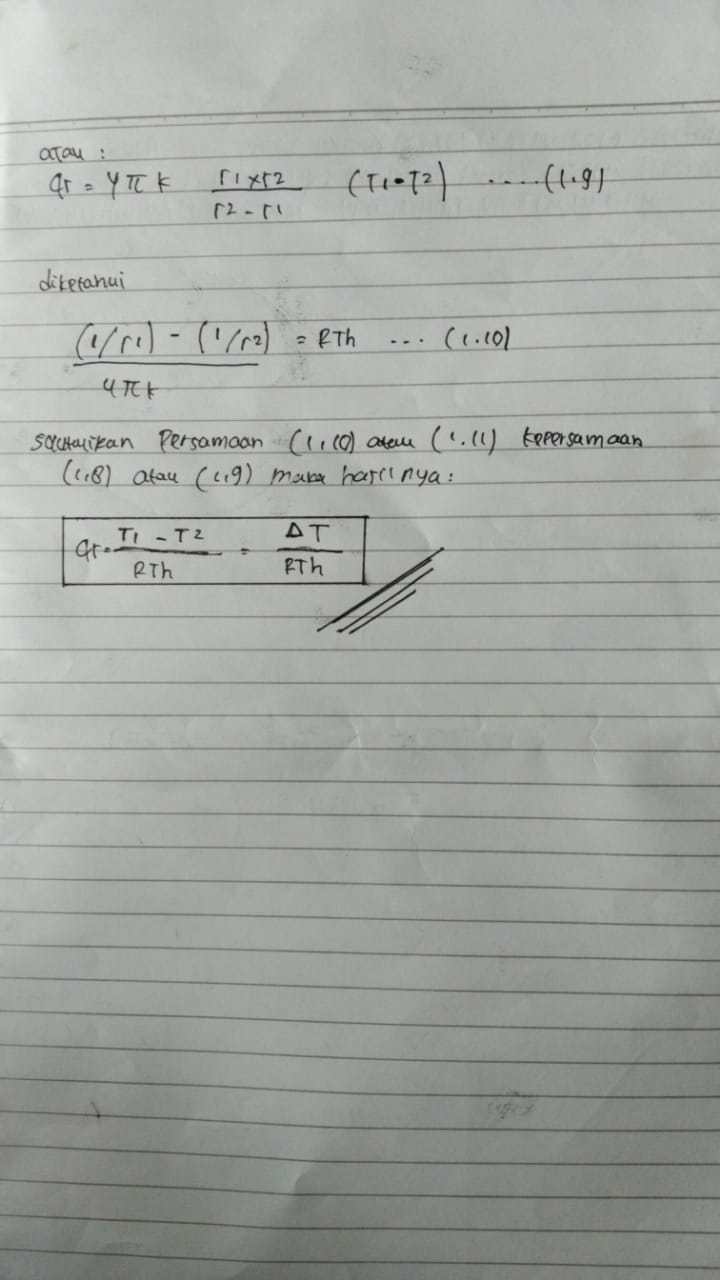 atau :
qr = 4πk (r1×r2)/(r2-r1) (T1-T2) .....(1.9)
diketahui
((1/r1) - (1/r2))/(4πk) = RTh ... (1.10)
Persamaan (1.10) atau (1.11) kepersamaan
(1.8) atau (1.9) maka hasilnya :
qr = (T1 - T2)/RTh = ΔT/RTh